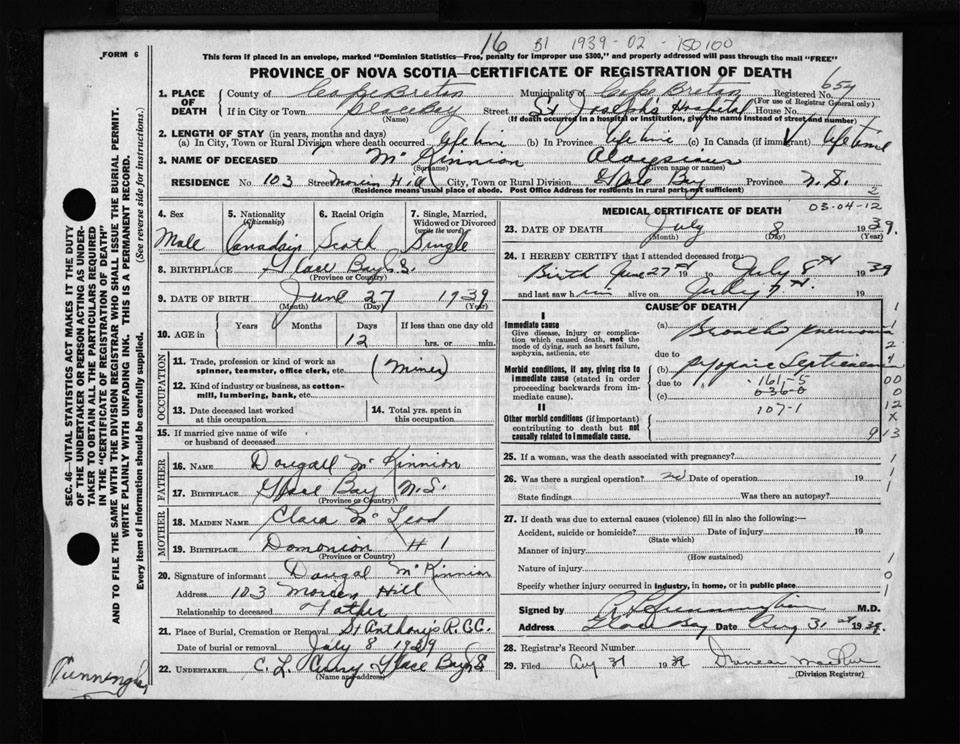 16 B1 1939-02-150100
FORM 6
This form if placed in an envelope, marked "Dominion Statistics—Free, penalty for improper use $300," and properly addressed will pass through the mail "FREE"
PROVINCE OF NOVA SCOTIA—CERTIFICATE OF REGISTRATION OF DEATH
1. PLACE OF DEATH
County of Cape Breton Municipality of Cape Breton Registered No. 654
(For use of Registrar General only)
If in City or Town Glace Bay Street St Joseph's Hospital House No.
(Name) (If death occurred in a hospital or institution, give the name instead of street and number)
2. LENGTH OF STAY (in years, months and days)
(a) In City, Town or Rural Division where death occurred life time (b) In Province life time (c) In Canada (if immigrant) life time
3. NAME OF DECEASED Mc Kinnion Aloysious
(Surname) (Given name or names)
RESIDENCE No 103 Street City, Town or Rural Division Glace Bay Province N.S.
(Residence means usual place of abode. Post Office Address for residents in rural parts not sufficient) 2
4. Sex
Male
5. Nationality
(Citizenship)
6. Racial Origin
Scotch
7. Single, Married, Widowed or Divorced
(write the word)
Single
8. BIRTHPLACE Glace Bay
(Province or Country)
9. DATE OF BIRTH June 27 1939
(Month) (Day) (Year)
10. AGE in Years Months Days If less than one day old
12 hrs. or min.
OCCUPATION
11. Trade, profession or kind of work as spinner, teamster, office clerk, etc. (Miner)
12. Kind of industry or business, as cotton-mill, lumbering, bank, etc.
13. Date deceased last worked at this occupation
14. Total yrs. spent in this occupation
15. If married give name of wife or husband of deceased
FATHER
16. NAME Dougall Mc Kinnion
17. BIRTHPLACE Glace Bay N.S.
(Province or Country)
MOTHER
18. MAIDEN NAME Clara Mc Leod
19. BIRTHPLACE Domonion # 1
(Province or Country)
20. Signature of informant Dougal McKinnion
Address 103 Morien Hill
Relationship to deceased Father
21. Place of Burial, Cremation or Removal St Anthonys R.C.C.
Date of burial or removal July 8 1939
22. UNDERTAKER C. L. Curry Glace Bay
(Name and address)
MEDICAL CERTIFICATE OF DEATH
03-04-12
23. DATE OF DEATH July 8 1939.
(Month) (Day) (Year)
24. I HEREBY CERTIFY that I attended deceased from:
Birth June 27th 19 to July 8th 1939
and last saw him alive on July 7th. 19
CAUSE OF DEATH
I
Immediate cause
Give disease, injury or complication which caused death, not the mode of dying, such as heart failure, asphyxia, asthenia, etc
(a) Broncho pneumonia
due to
Morbid conditions, if any, giving rise to immediate cause (stated in order proceeding backwards from immediate cause).
(b)
due to 161-5
(c) 036-0
II
Other morbid conditions (if important) contributing to death but not causally related to immediate cause.
107-1
25. If a woman, was the death associated with pregnancy?
26. Was there a surgical operation? Date of operation 19
State findings Was there an autopsy?
27. If death was due to external causes (violence) fill in also the following:—
Accident, suicide or homicide? Date of injury 19
(State which)
Manner of injury
(How sustained)
Nature of injury
Specify whether injury occurred in industry, in home, or in public place
Signed by Cunningham M.D.
Address Glace Bay Date Aug 31st 1939.
28. Registrar's Record Number
29. Filed Aug 31 1939 Duncan
(Division Registrar)
SEC. 46—VITAL STATISTICS ACT MAKES IT THE DUTY OF THE UNDERTAKER OR PERSON ACTING AS UNDERTAKER TO OBTAIN ALL THE PARTICULARS REQUIRED IN THE "CERTIFICATE OF REGISTRATION OF DEATH" AND TO FILE THE SAME WITH THE DIVISION REGISTRAR WHO SHALL ISSUE THE BURIAL PERMIT.
WRITE PLAINLY WITH UNFADING INK. THIS IS A PERMANENT RECORD.
Every item of information should be carefully supplied. (See reverse side for instructions.)